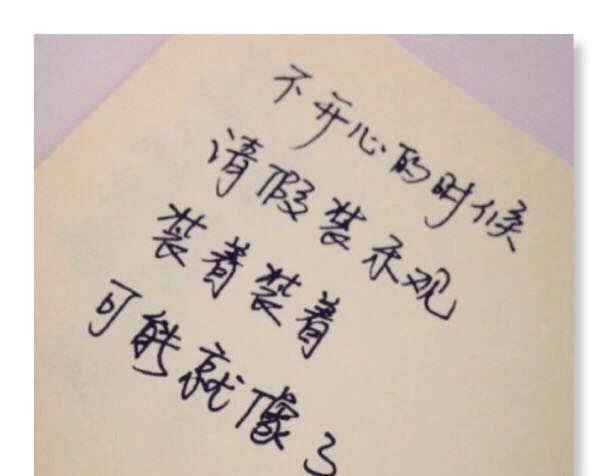 不开心的时候
请假装乐观
装着装着
可能就像了